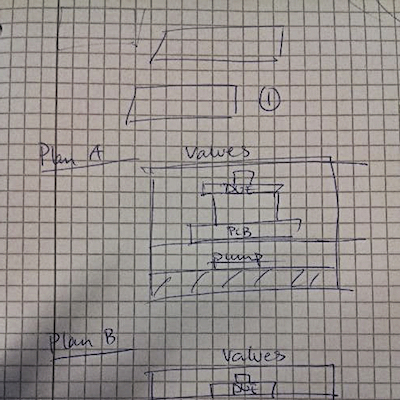 ①
Plan A
Valves
PCB
pump
Plan B
Valves